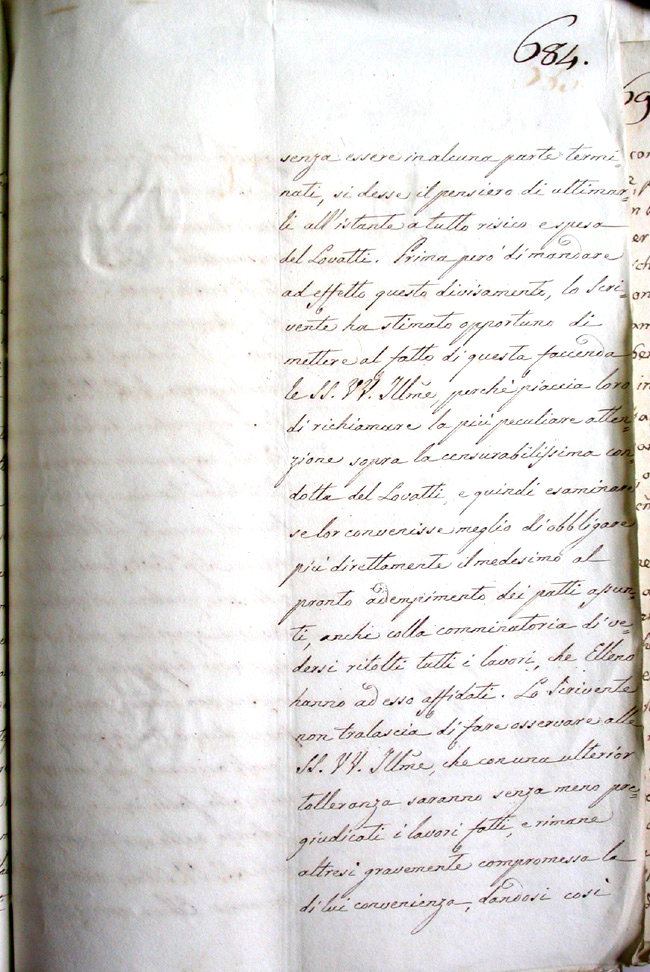 684.
senza essere in alcuna parte termi-
nati, si desse il pensiero di ultimar-
li all'istante a tutto risico e spesa
del Lovatti. Prima però di mandare
ad effetto questo divisamento, lo Scri-
vente ha stimato opportuno di
mettere al fatto di questa faccenda
le SS. VV. Illme, perchè piaccia loro
di richiamare la più peculiare atten-
zione sopra la censurabilissima con-
dotta del Lovatti, e quindi esaminare
se lor convenisse meglio di obbligare
più direttamente il medesimo al
pronto adempimento dei patti assun-
ti, anche colla comminatoria di ve-
dersi ritolti tutti i lavori, che Elleno
hanno ad esso affidati. Lo Scrivente
non tralascia di fare osservare alle
SS. VV. Illme, che con una ulterior
tolleranza saranno senza meno pre-
giudicati i lavori fatti, e rimane
altresì gravemente compromessa la
di lui convenienza, dandosi così